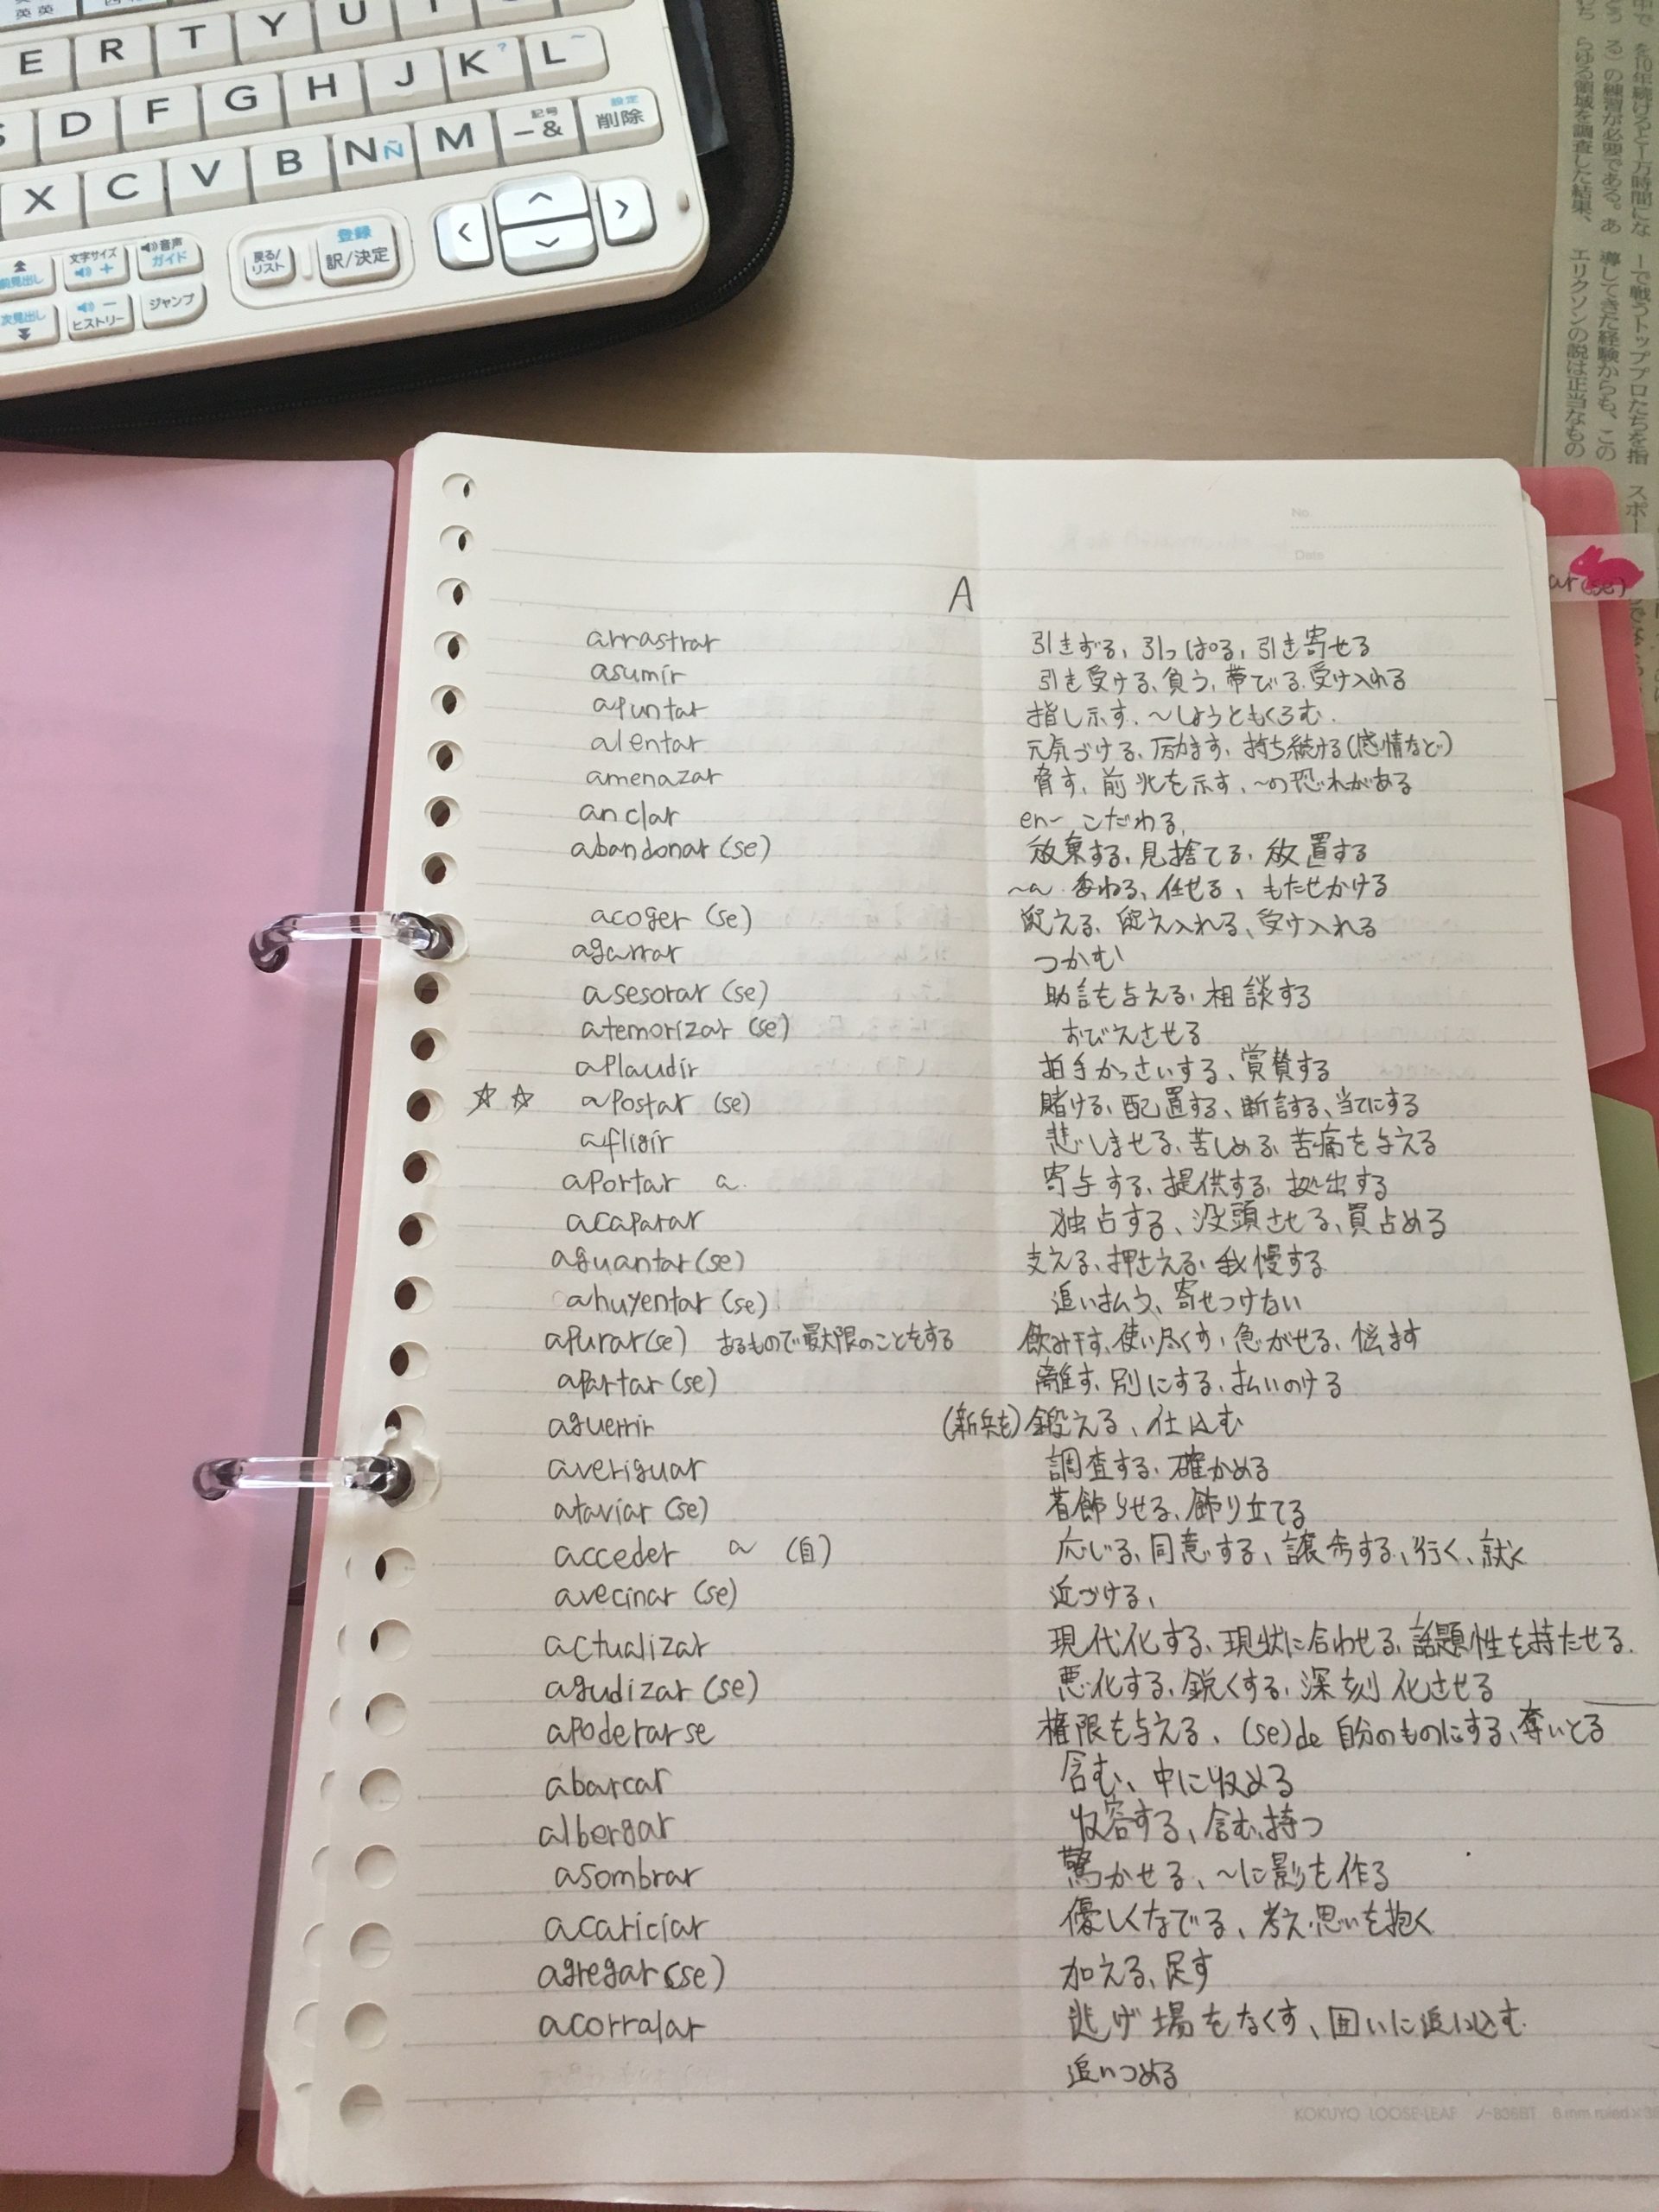 英英
E R T Y U I
S D F G H J K ? L ~
X C V B N Ñ M 記号 -& 設定 削除
前見出し 文字サイズ + 音声 ガイド 戻る/リスト 登録 訳/決定
次見出し - ヒストリー ジャンプ
を10年続けると一万時間にな
る)の練習が必要である。あ
らゆる領域を調査した結果、
ーで戦うトッププロたちを指
導してきた経験からも、この
エリクソンの説は正当なもの
スポー
No.
Date
ar(se)
A
arrastrar 引きずる、引っぱる、引き寄せる
asumir 引き受ける、負う、帯びる、受け入れる
apuntar 指し示す、〜しようともくろむ.
alentar 元気づける、励ます、持ち続ける(感情など)
amenazar 脅す、前兆を示す、〜の恐れがある
anclar en- こだわる、
abandonar (se) 放棄する、見捨てる、放置する
〜a 委ねる、任せる、もたせかける
acoger (se) 迎える、迎え入れる、受け入れる
agarrar つかむ
asesorar (se) 助言を与える、相談する
atemorizar (se) おびえさせる
aplaudir 拍手かっさいする、賞賛する
☆☆ apostar (se) 賭ける、配置する、断言する、当てにする
afligir 悲しませる、苦しめる、苦痛を与える
aportar a. 寄与する、提供する、拠出する
acaparar 独占する、没頭させる、買占める
aguantar (se) 支える、押さえる、我慢する
ahuyentar (se) 追い払う、寄せつけない
apurar(se) あるもので最大限のことをする 飲み干す、使い尽くす、急がせる、悩ます
apartar (se) 離す、別にする、払いのける
aguerrir (新兵を)鍛える、仕込む
averiguar 調査する、確かめる
ataviar (se) 着飾らせる、飾り立てる
acceder a (自) 応じる、同意する、譲歩する、行く、就く
avecinar (se) 近づける、
actualizar 現代化する、現状に合わせる、話題性を持たせる.
agudizar (se) 悪化する、鋭くする、深刻化させる
apoderarse 権限を与える、(se)de 自分のものにする、奪いとる
abarcar 含む、中に収める
albergar 収容する、含む、持つ
asombrar 驚かせる、〜に影を作る
acariciar 優しくなでる、考え・思いを抱く
agregar (se) 加える、足す
acorralar 逃げ場をなくす、囲いに追い込む
追いつめる
KOKUYO LOOSE-LEAF ノ-836BT 6 mm ruled×36